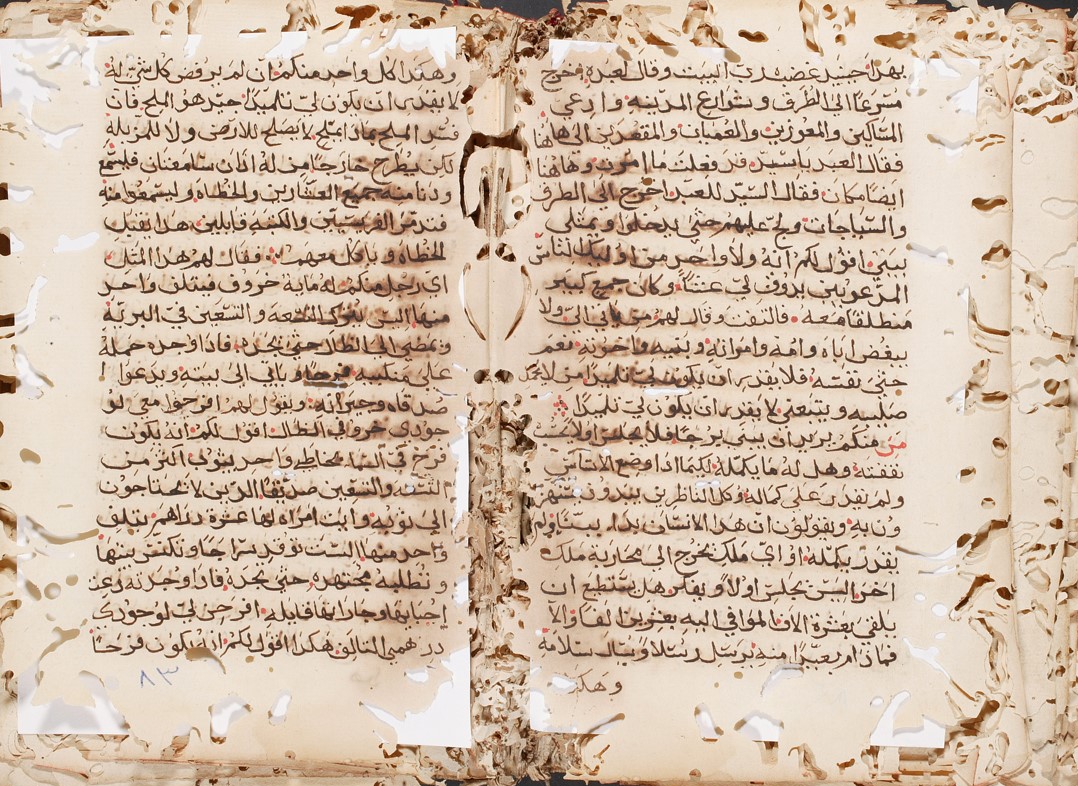 بهذا حينيذ غضب رب البيت وقال لعبده اخرج
مسرعًا الى الطرق وشوارع المدينه وادعي
المساكين والمعوزين والعميان والمقعدين الى هاهنا
فقال العبد ياسيد قد فعلت ما امرت وهاهنا
ايضًا مكان فقال السيد للعبد اخرج الى الطرق
والسياجات ولج عليهم حتى يدخلوا ويمتلى
بيتي اقول لكم انه ولا واحد من اوليك الناس
المدعويين يذوق لي عشاً وكان جمع كبير
منطلقًا معه فالتفت وقال لهم من ياتي اليّ ولا
يبغض اباه وامه وامراته وبنيه واخوته نعم
حتى نفسه فلا يقدر ان يكون لي تلميذًا من لا يحمل
صليبه ويتبعني لا يقدر ان يكون لي تلميذًا
من منكم يريد ان يبني برجًا فلا يجلس اولا يحسب
نفقته وهل له ما يكمله لكيما اذا وضع الاساس
ولم يقدر على كماله وكل الناظرين يبتدون يستهز
ون به ويقولون ان هذا الانسان بدا يبني ولم
يقدر يكمله او اي ملك يخرج الى محاربة ملك
اخر اليس يجلس اولًا ويفكر هل يستطيع ان
يلقى بعشرة الاف الموافي اليه بعشرين الفًا والا
فمادام بعيدًا منه يرسل رسلًا ويسال سلامة
وهكذا
وهكذا كل واحد منكم ان لم يرفض كل شي له
لا يقدر ان يكون لي تلميذًا جيد هو الملح فان
فسد الملح بماذا يملح لا يصلح للارض ولا للمزبلة
لكن يطرح خارجًا من له اذان سامعتان فليسمع
ودنا منه جميع العشارين والخطاه ليسمعوا منه
فتذمر الفريسيين والكتبه قايلين هذا يقبل
الخطاه وياكل معهم فقال لهم هذا المثل
اي رجل منكم له ماية خروف فيتلف واحد
منها اليس يترك التسعه والتسعين في البرية
ويمضي الى الضال حتى يجده فاذا وجده حمله
على منكبيه فرحًا وياتي الى بيته ويدعوا
صدقاه وجيرانه ويقول لهم افرحوا معي لو
جودي خروفي الضال اقول لكم انه يكون
فرح في السما بخاطي واحد يتوب اكثر من
التسعه والتسعين صديقًا الذين لا يحتاجون
الى توبه وايت امراه لها عشرة دراهم يتلف
واحد منها اليست توقد سراجًا وتكنس بيتها
وتطلبه مجتهده حتى تجده فاذا وجدته تدعي
احبابها وجاراتها قايله افرحن لي لوجودي
درهمي التالف هكذا اقول لكم انه يكون فرحًا
٨٣